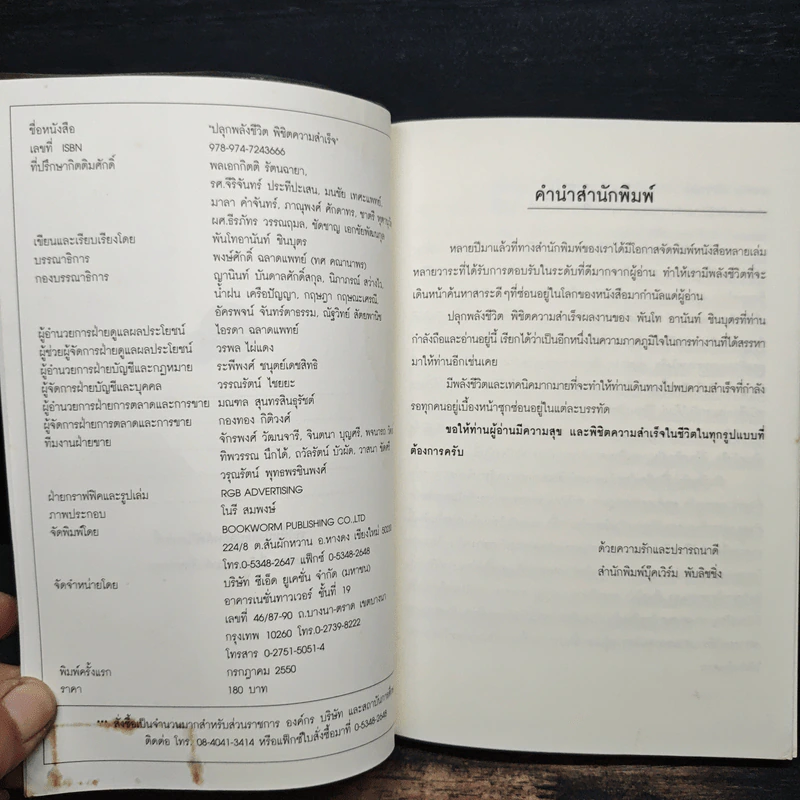 ชื่อหนังสือ "ปลุกพลังชีวิต พิชิตความสำเร็จ"
เลขที่ ISBN 978-974-7243666
ที่ปรึกษากิตติมศักดิ์ พลเอกกิตติ รัตนฉายา,
รศ.จีริจันทร์ ประทีปะเสน, มนชัย เทศะแพทย์,
มาลา คำจันทร์, ภาณุพงศ์ ศักดาทร, ชาตรี
ผศ.ธีรภัทร วรรณฤมล, ชัดชาญ เอกชัยพัฒนกุล
เขียนและเรียบเรียงโดย พันโทอานันท์ ชินบุตร
บรรณาธิการ พงษ์ศักดิ์ ฉลาดแพทย์ (ทศ คณานาพร)
กองบรรณาธิการ ญานินท์ บันดาลศักดิ์สกุล, นิภาภรณ์ สว่างใจ,
น้ำฝน เครือปัญญา, กฤษฎา กฤษณะเศรณี,
อัครพจน์ จันทร์ตาธรรม, ณัฐวิทย์ สัตยพานิช
ผู้อำนวยการฝ่ายดูแลผลประโยชน์ ไอรดา ฉลาดแพทย์
ผู้ช่วยผู้จัดการฝ่ายดูแลผลประโยชน์ วรพล ไผ่แดง
ผู้อำนวยการฝ่ายบัญชีและกฎหมาย ระพีพงศ์ ชนุตย์เดชสิทธิ
ผู้จัดการฝ่ายบัญชีและบุคคล วรรณรัตน์ ไชยยะ
ผู้อำนวยการฝ่ายการตลาดและการขาย มณฑล สุนทรสินธุรัชต์
ผู้จัดการฝ่ายการตลาดและการขาย กองทอง กิติวงศ์
ทีมงานฝ่ายขาย จักรพงศ์ วัฒนจารี, จินตนา บุญศรี,
ทิพวรรณ นึกได้, ถวัลรัตน์ บัวผัด, วาสนา
วรุณรัตน์ พุทธพรชินพงศ์
ฝ่ายกราฟฟิคและรูปเล่ม RGB ADVERTISING
ภาพประกอบ โนรี สมพงษ์
จัดพิมพ์โดย BOOKWORM PUBLISHING CO.,LTD
224/8 ต.สันผักหวาน อ.หางดง เชียงใหม่ 50230
โทร.0-5348-2647 แฟ็กซ์ 0-5348-2648
จัดจำหน่ายโดย บริษัท ซีเอ็ด ยูเคชั่น จำกัด (มหาชน)
อาคารเนชั่นทาวเวอร์ ชั้นที่ 19
เลขที่ 46/87-90 ถ.บางนา-ตราด เขตบางนา
กรุงเทพ 10260 โทร.0-2739-8222
โทรสาร 0-2751-5051-4
พิมพ์ครั้งแรก กรกฎาคม 2550
ราคา 180 บาท
*** สั่งซื้อเป็นจำนวนมากสำหรับส่วนราชการ องค์กร บริษัท และสถาบันการศึกษา
ติดต่อ โทร. 08-4041-3414 หรือแฟ็กซ์ใบสั่งซื้อมาที่ 0-5348-2648
คำนำสำนักพิมพ์
หลายปีมาแล้วที่ทางสำนักพิมพ์ของเราได้มีโอกาสจัดพิมพ์หนังสือหลายเล่ม
หลายวาระที่ได้รับการตอบรับในระดับที่ดีมากจากผู้อ่าน ทำให้เรามีพลังชีวิตที่จะ
เดินหน้าค้นหาสาระดีๆที่ซ่อนอยู่ในโลกของหนังสือมากำนัลแด่ผู้อ่าน
ปลุกพลังชีวิต พิชิตความสำเร็จผลงานของ พันโท อานันท์ ชินบุตรที่ท่าน
กำลังถือและอ่านอยู่นี้ เรียกได้ว่าเป็นอีกหนึ่งในความภาคภูมิใจในการทำงานที่ได้สรรหา
มาให้ท่านอีกเช่นเคย
มีพลังชีวิตและเทคนิคมากมายที่จะทำให้ท่านเดินทางไปพบความสำเร็จที่กำลัง
รอทุกคนอยู่เบื้องหน้าซุกซ่อนอยู่ในแต่ละบรรทัด
ขอให้ท่านผู้อ่านมีความสุข และพิชิตความสำเร็จในชีวิตในทุกรูปแบบที่
ต้องการครับ
ด้วยความรักและปรารถนาดี
สำนักพิมพ์บุ๊คเวิร์ม พับลิชชิ่ง